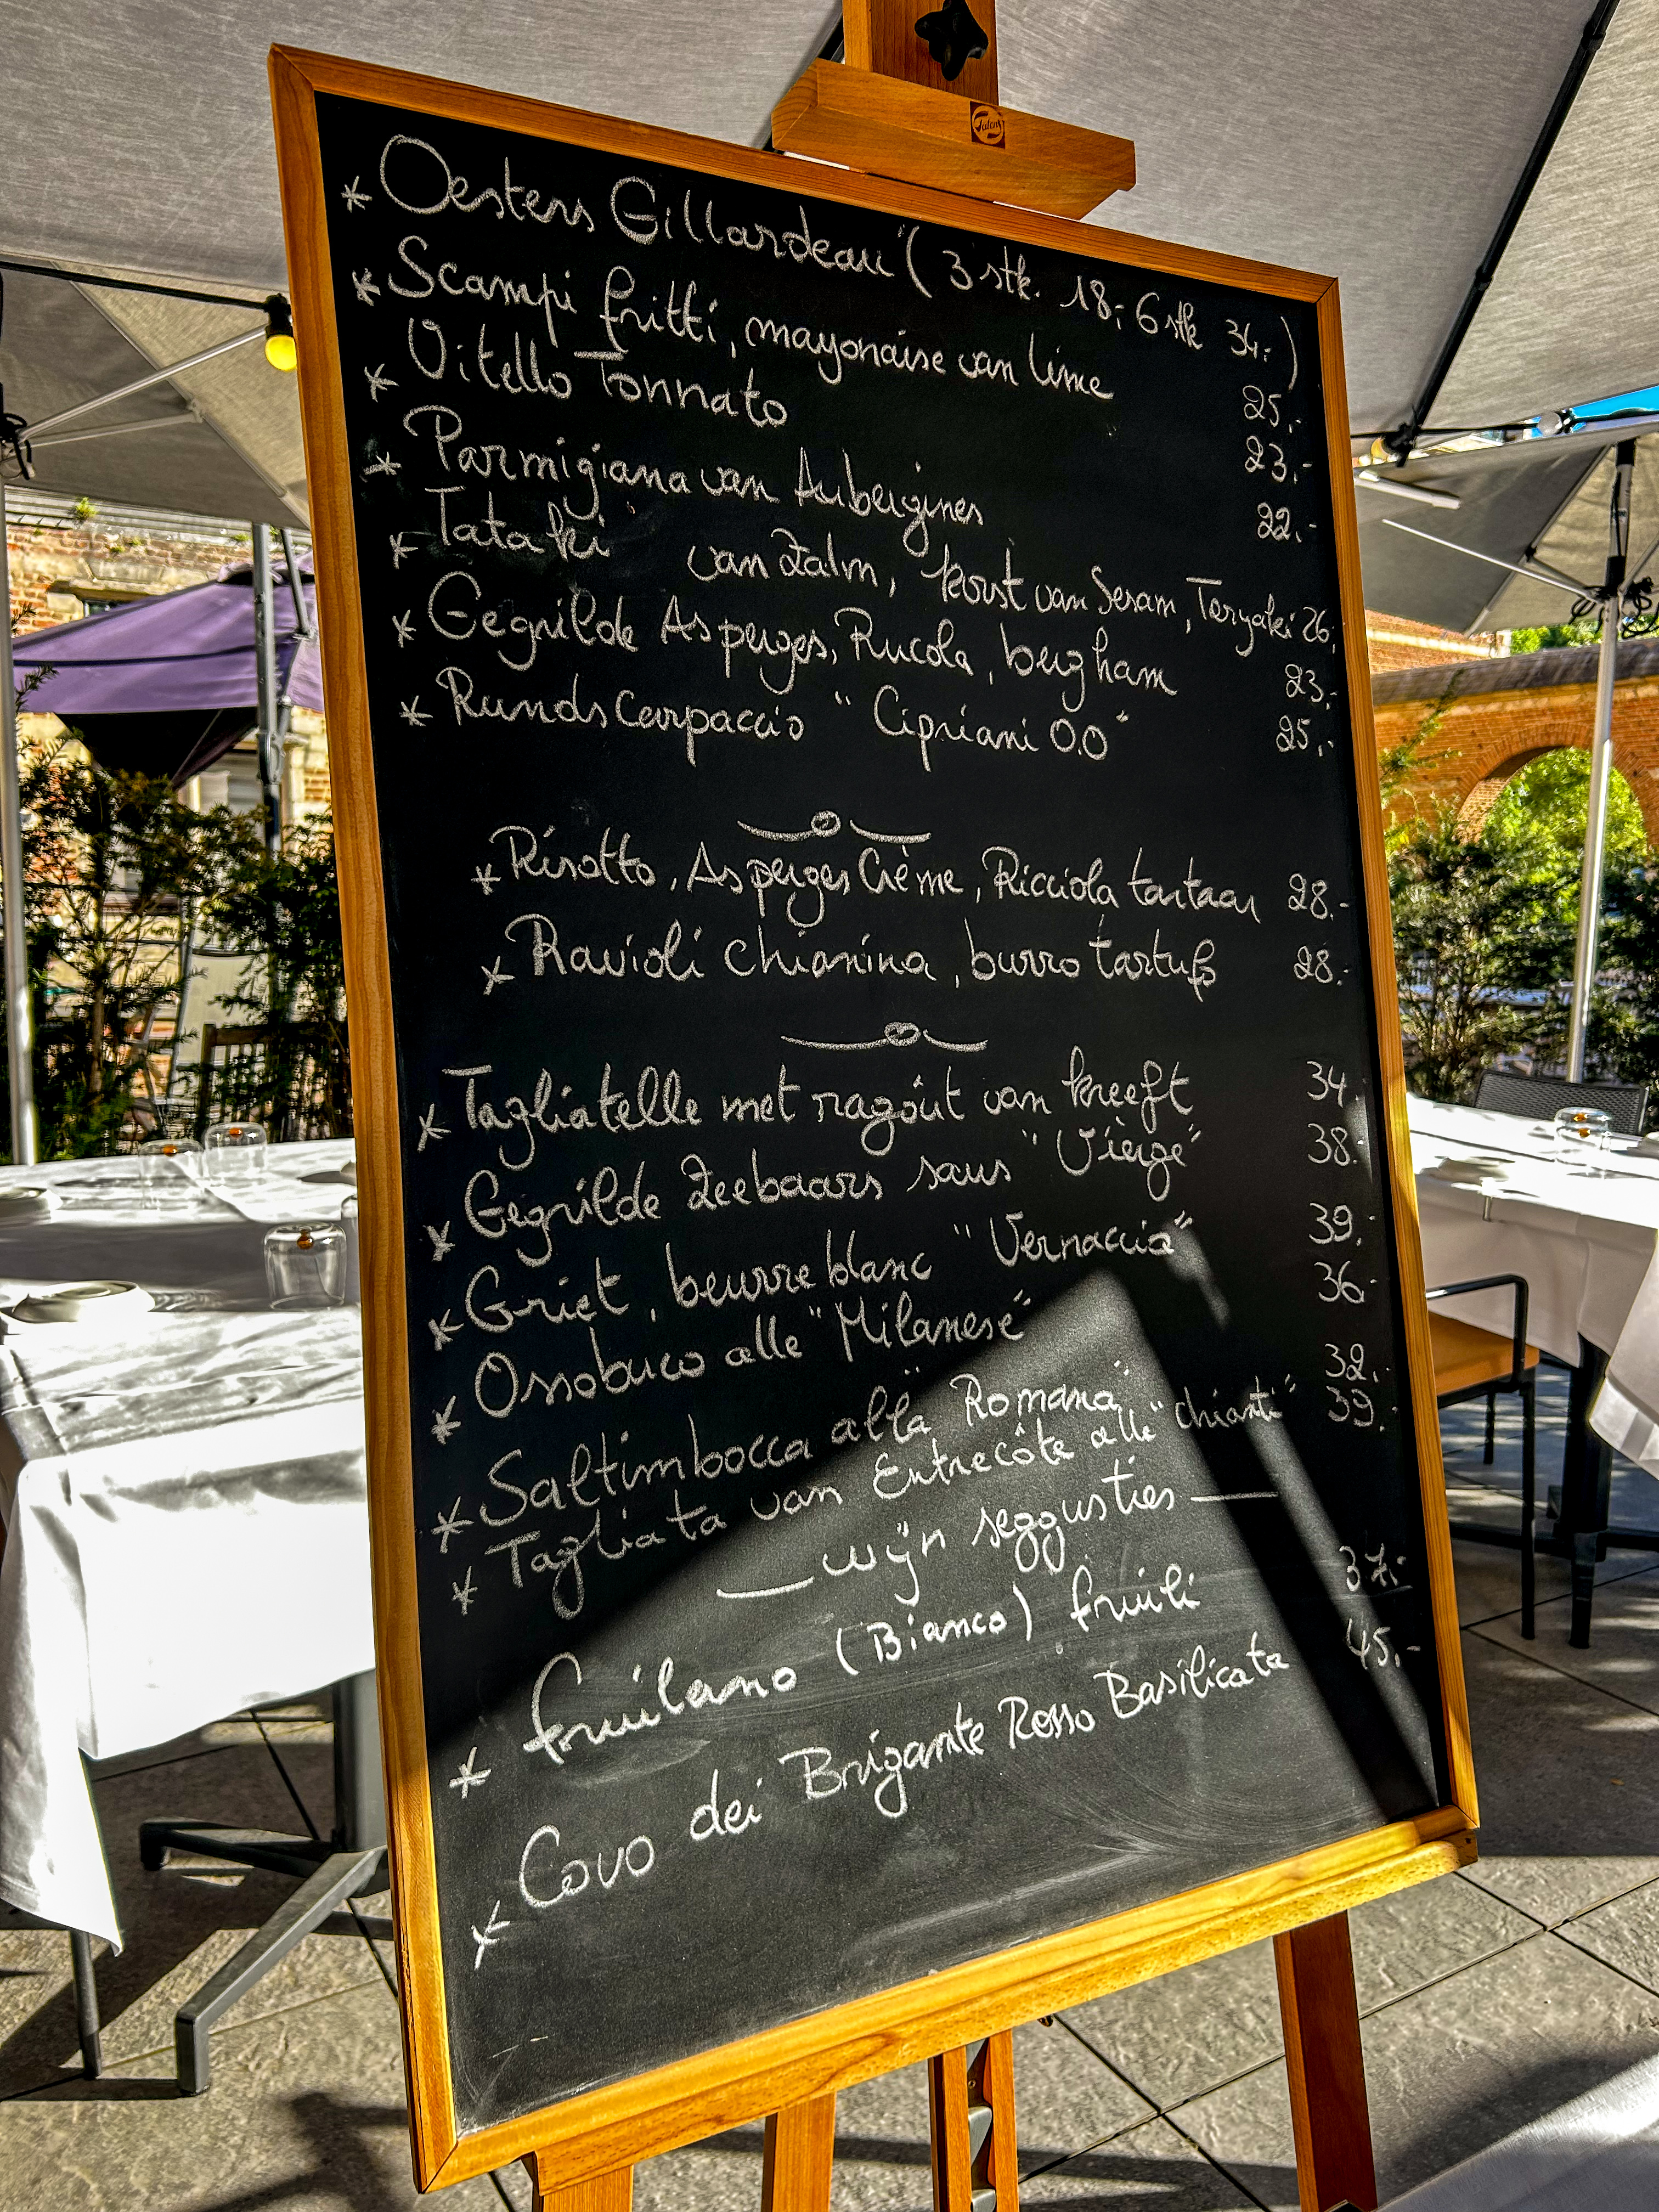 Talens
* Oesters Gillardeau" ( 3 stk. 18,- 6 stk 34,- )
* Scampi fritti, mayonaise van lime 25,-
* Vitello Tonnato 23,-
* Parmigiana van Aubergines 22,-
* Tataki van Zalm, korst van Sesam, Teryaki 26,-
* Gegrilde Asperges, Rucola, bergham 23,-
* Runds Carpaccio "Cipriani O.O" 25,-
* Risotto, Asperges Crème, Ricciola tartaar 28,-
* Ravioli chianina, burro tartufo 28,-
* Tagliatelle met ragôut van kreeft 34,-
* Gegrilde Zeebaars saus "Vièrge" 38,-
* Griet, beurre blanc "Vernaccia" 39,-
* Ossobuco alle "Milanese" 36,-
* Saltimbocca alla "Romana" 32,-
* Tagliata van Entrecôte alle "chianti" 39,-
— wijn seggusties —
* fruilano (Bianco) fruili 37,-
* Covo dei Brigante Rosso Basilicata 45,-